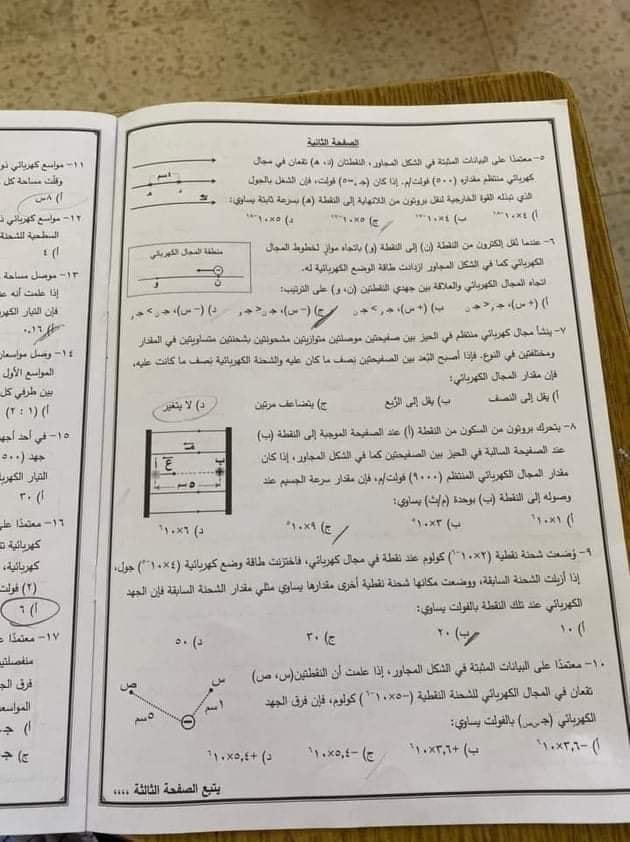 الصفحة الثانية
٥- معتمدًا على البيانات المثبتة في الشكل المجاور، النقطتان (د، هـ) تقعان في مجال
كهربائي منتظم مقداره (٥٠٠) فولت/م. إذا كان
فولت، فإن الشغل بالجول
الذي تبذله القوة الخارجية لنقل بروتون من اللانهاية إلى النقطة (هـ) بسرعة ثابتة يساوي:
٤سم
٦- عندما نُقل إلكترون من النقطة (ن) إلى النقطة (و) باتجاه موازٍ لخطوط المجال
الكهربائي كما في الشكل المجاور ازدادت طاقة الوضع الكهربائية له.
اتجاه المجال الكهربائي والعلاقة بين جهدي النقطتين (ن، و) على الترتيب:
منطقة المجال الكهربائي
و ن
٧- ينشأ مجال كهربائي منتظم في الحيز بين صفيحتين موصلتين متوازيتين مشحونتين بشحنتين متساويتين في المقدار
ومختلفتين في النوع. فإذا أصبح البُعد بين الصفيحتين نِصف ما كان عليه والشحنة الكهربائية نِصف ما كانت عليه،
فإن مقدار المجال الكهربائي:
أ) يقل إلى النصف ب) يقل إلى الرُّبع ج) يتضاعف مرتين د) لا يتغير
٨- يتحرك بروتون من السكون من النقطة (أ) عند الصفيحة الموجبة إلى النقطة (ب)
عند الصفيحة السالبة في الحيز بين الصفيحتين كما في الشكل المجاور، إذا كان
مقدار المجال الكهربائي المنتظم (٩٠٠٠) فولت/م، فإن مقدار سرعة الجسيم عند
وصوله إلى النقطة (ب) بوحدة (م/ث) يساوي:
أ) ١×١٠⁶ ب) ٣×١٠⁵ ج) ٩×١٠⁵ د) ٦×١٠⁶
أ
ب
٥ سم
٩- وُضعت شحنة نقطية (٢×١٠⁻⁶) كولوم عند نقطة في مجال كهربائي، فاختزنت طاقة وضع كهربائية (٤×١٠⁻⁵) جول،
إذا أزيلت الشحنة السابقة، ووضعت مكانها شحنة نقطية أخرى مقدارها يساوي مثلي مقدار الشحنة السابقة فإن الجهد
الكهربائي عند تلك النقطة بالفولت يساوي:
أ) ١٠ ب) ٢٠ ج) ٣٠ د) ٥٠
١٠- معتمدًا على البيانات المثبتة في الشكل المجاور، إذا علمت أن النقطتين (س، ص)
تقعان في المجال الكهربائي للشحنة النقطية (-٥×١٠⁻⁶) كولوم، فإن فرق الجهد
الكهربائي (جـ س ص) بالفولت يساوي:
أ) -٣,٦×١٠⁶ ب) +٣,٦×١٠⁶ ج) -٥,٤×١٠⁶ د) +٥,٤×١٠⁶
ص
س
١سم
٥سم
يتبع الصفحة الثالثة ،،،،
١١- مواسع كهربائي
أ) ٨س
١٢- مواسع كهربائي
السطحية للشحنة
أ) ٤
١٣- موصل مساحة
إذا علمت أنه
فإن التيار
أ) ٠,١٦
١٤- وصل مواسعان
المواسع الأول
بين طرفي كل
أ) (١ : ٢)
١٥- في أحد
جهد
التيار
أ) ٣٠
١٦- معتمدًا
كهربائية
كهربائية،
(٢) فولت
أ) ٦
١٧- معتمدًا
فرق الجهد
أ)
ج)